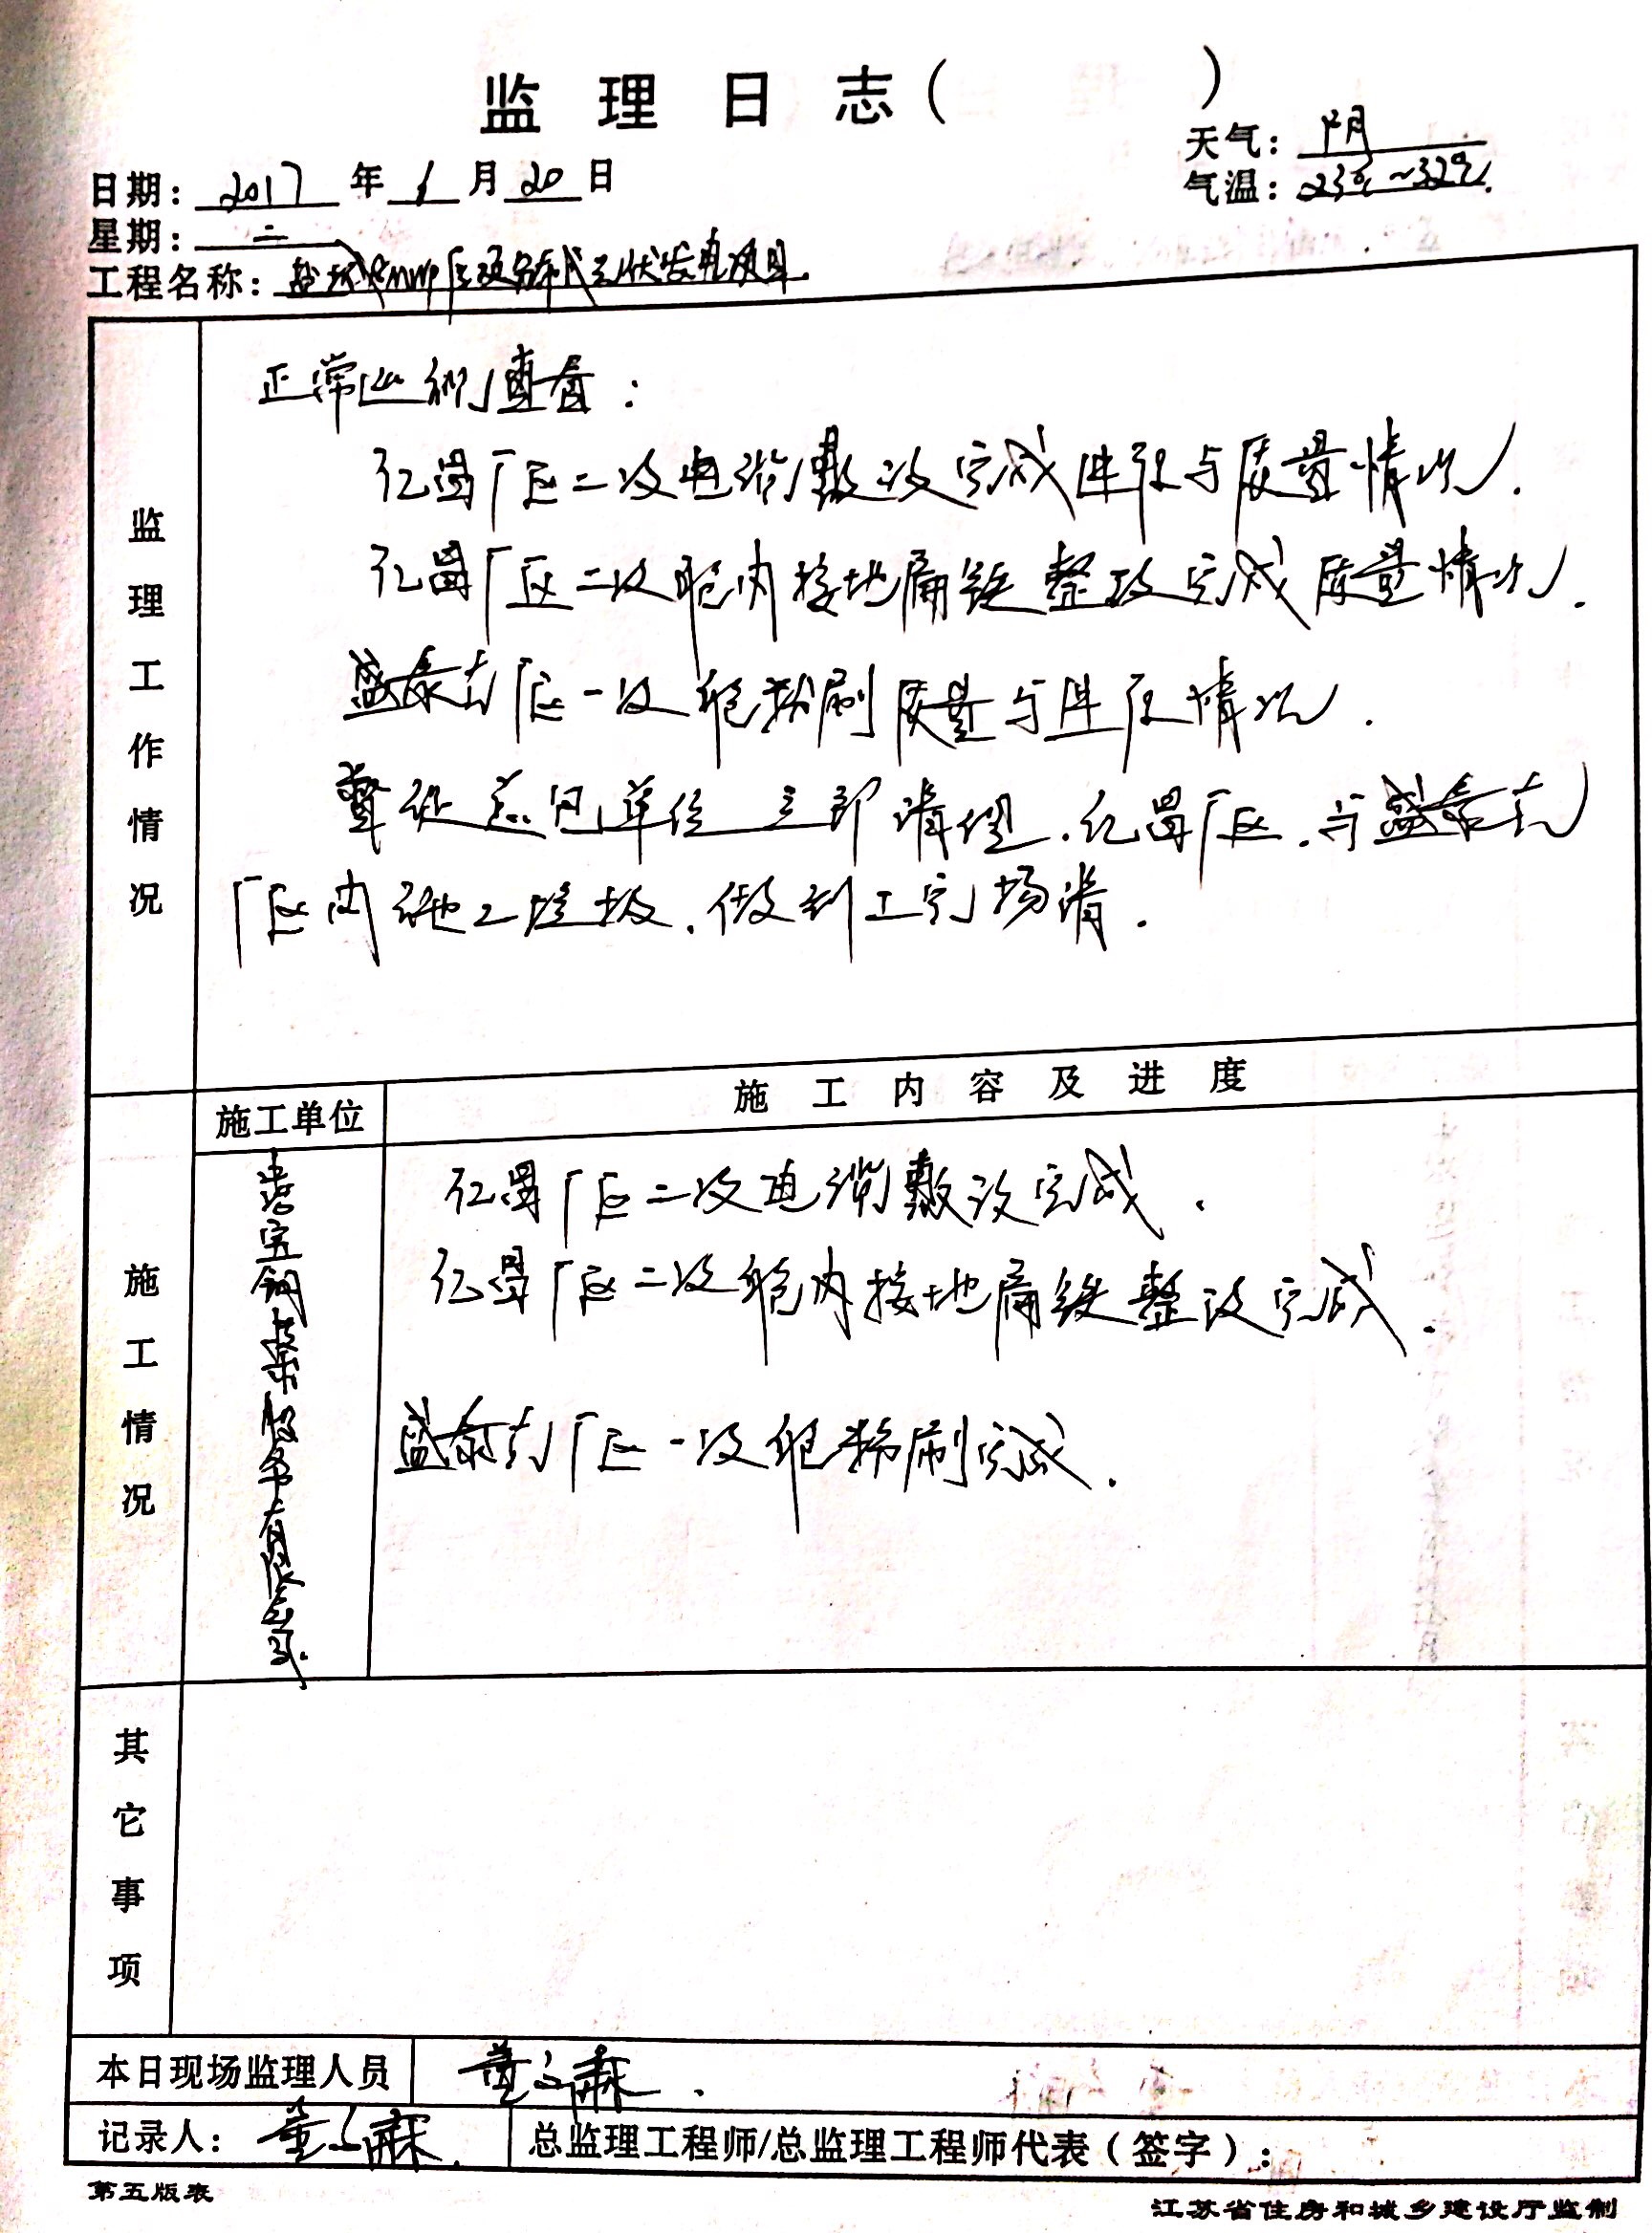 监理日志（ ）
天气：阴
日期：2017年6月20日
气温：23℃~32℃
星期：二
工程名称：盐城 屋顶分布式光伏发电项目
正常巡视检查：
亿昌厂区二次电缆敷设完成进度与质量情况.
亿昌厂区二次舱内接地扁铁整改完成质量情况.
盛泰东厂区一次舱粉刷质量与进度情况.
督促总包单位立即清理.亿昌厂区.与盛泰东
厂区内施工垃圾.做到工完场清.
监理工作情况
施工单位
施工内容及进度
亿昌厂区二次电缆敷设完成.
亿昌厂区二次舱内接地扁铁整改完成.
盛泰东厂区一次舱粉刷完成.
宝钢 股份有限公司.
施工情况
其它事项
本日现场监理人员 董 霖.
记录人：董 霖. 总监理工程师/总监理工程师代表（签字）：
第五版表
江苏省住房和城乡建设厅监制